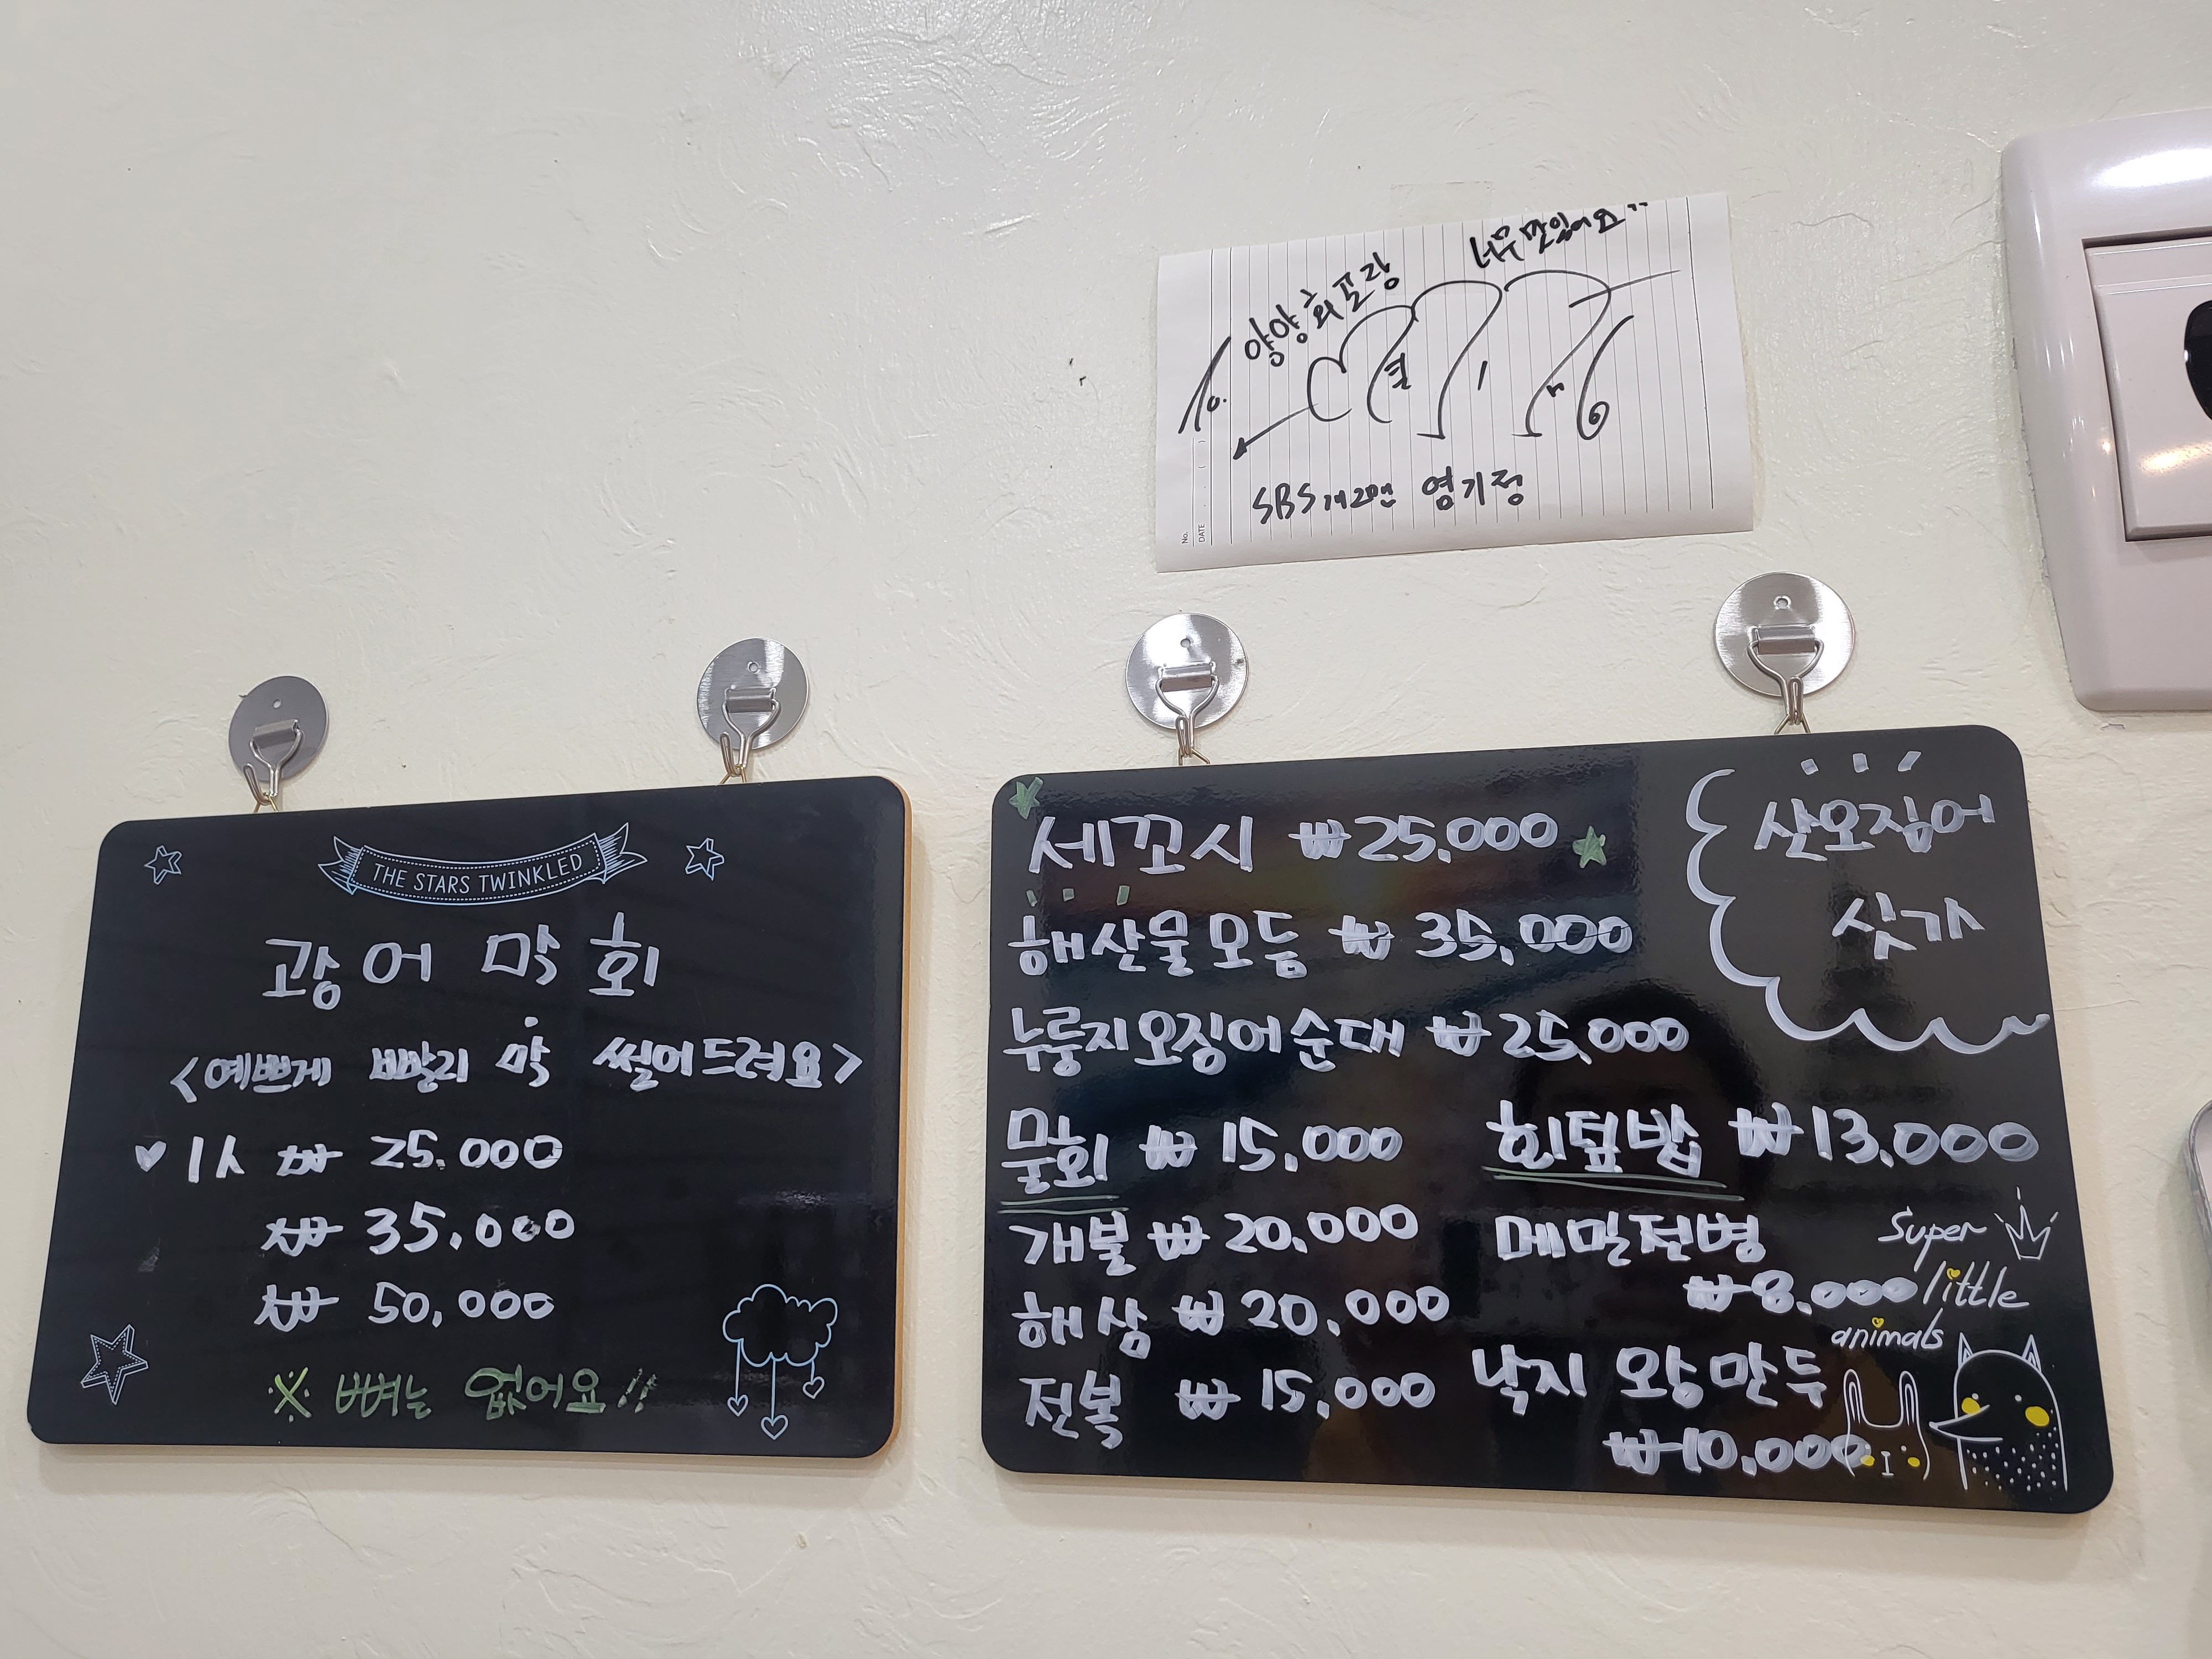 양양 회 포장
너무 맛있어요!!
SBS 개그맨 염기정
No.
DATE
THE STARS TWINKLED
광어 막회
<예쁘게 빨리 막 썰어드려요>
1人 ₩ 25.000
₩ 35.000
₩ 50,000
※ 뼈는 없어요!!
세꼬시 ₩25.000
해산물모듬 ₩ 35,000
누룽지오징어순대 ₩ 25,000
물회 ₩ 15,000
개불 ₩ 20,000
해삼 ₩ 20,000
전복 ₩ 15,000
산오징어
싯가
회덮밥 ₩13,000
메밀전병
₩8.000
낙지 왕만두
₩10,000
Super
little
animals